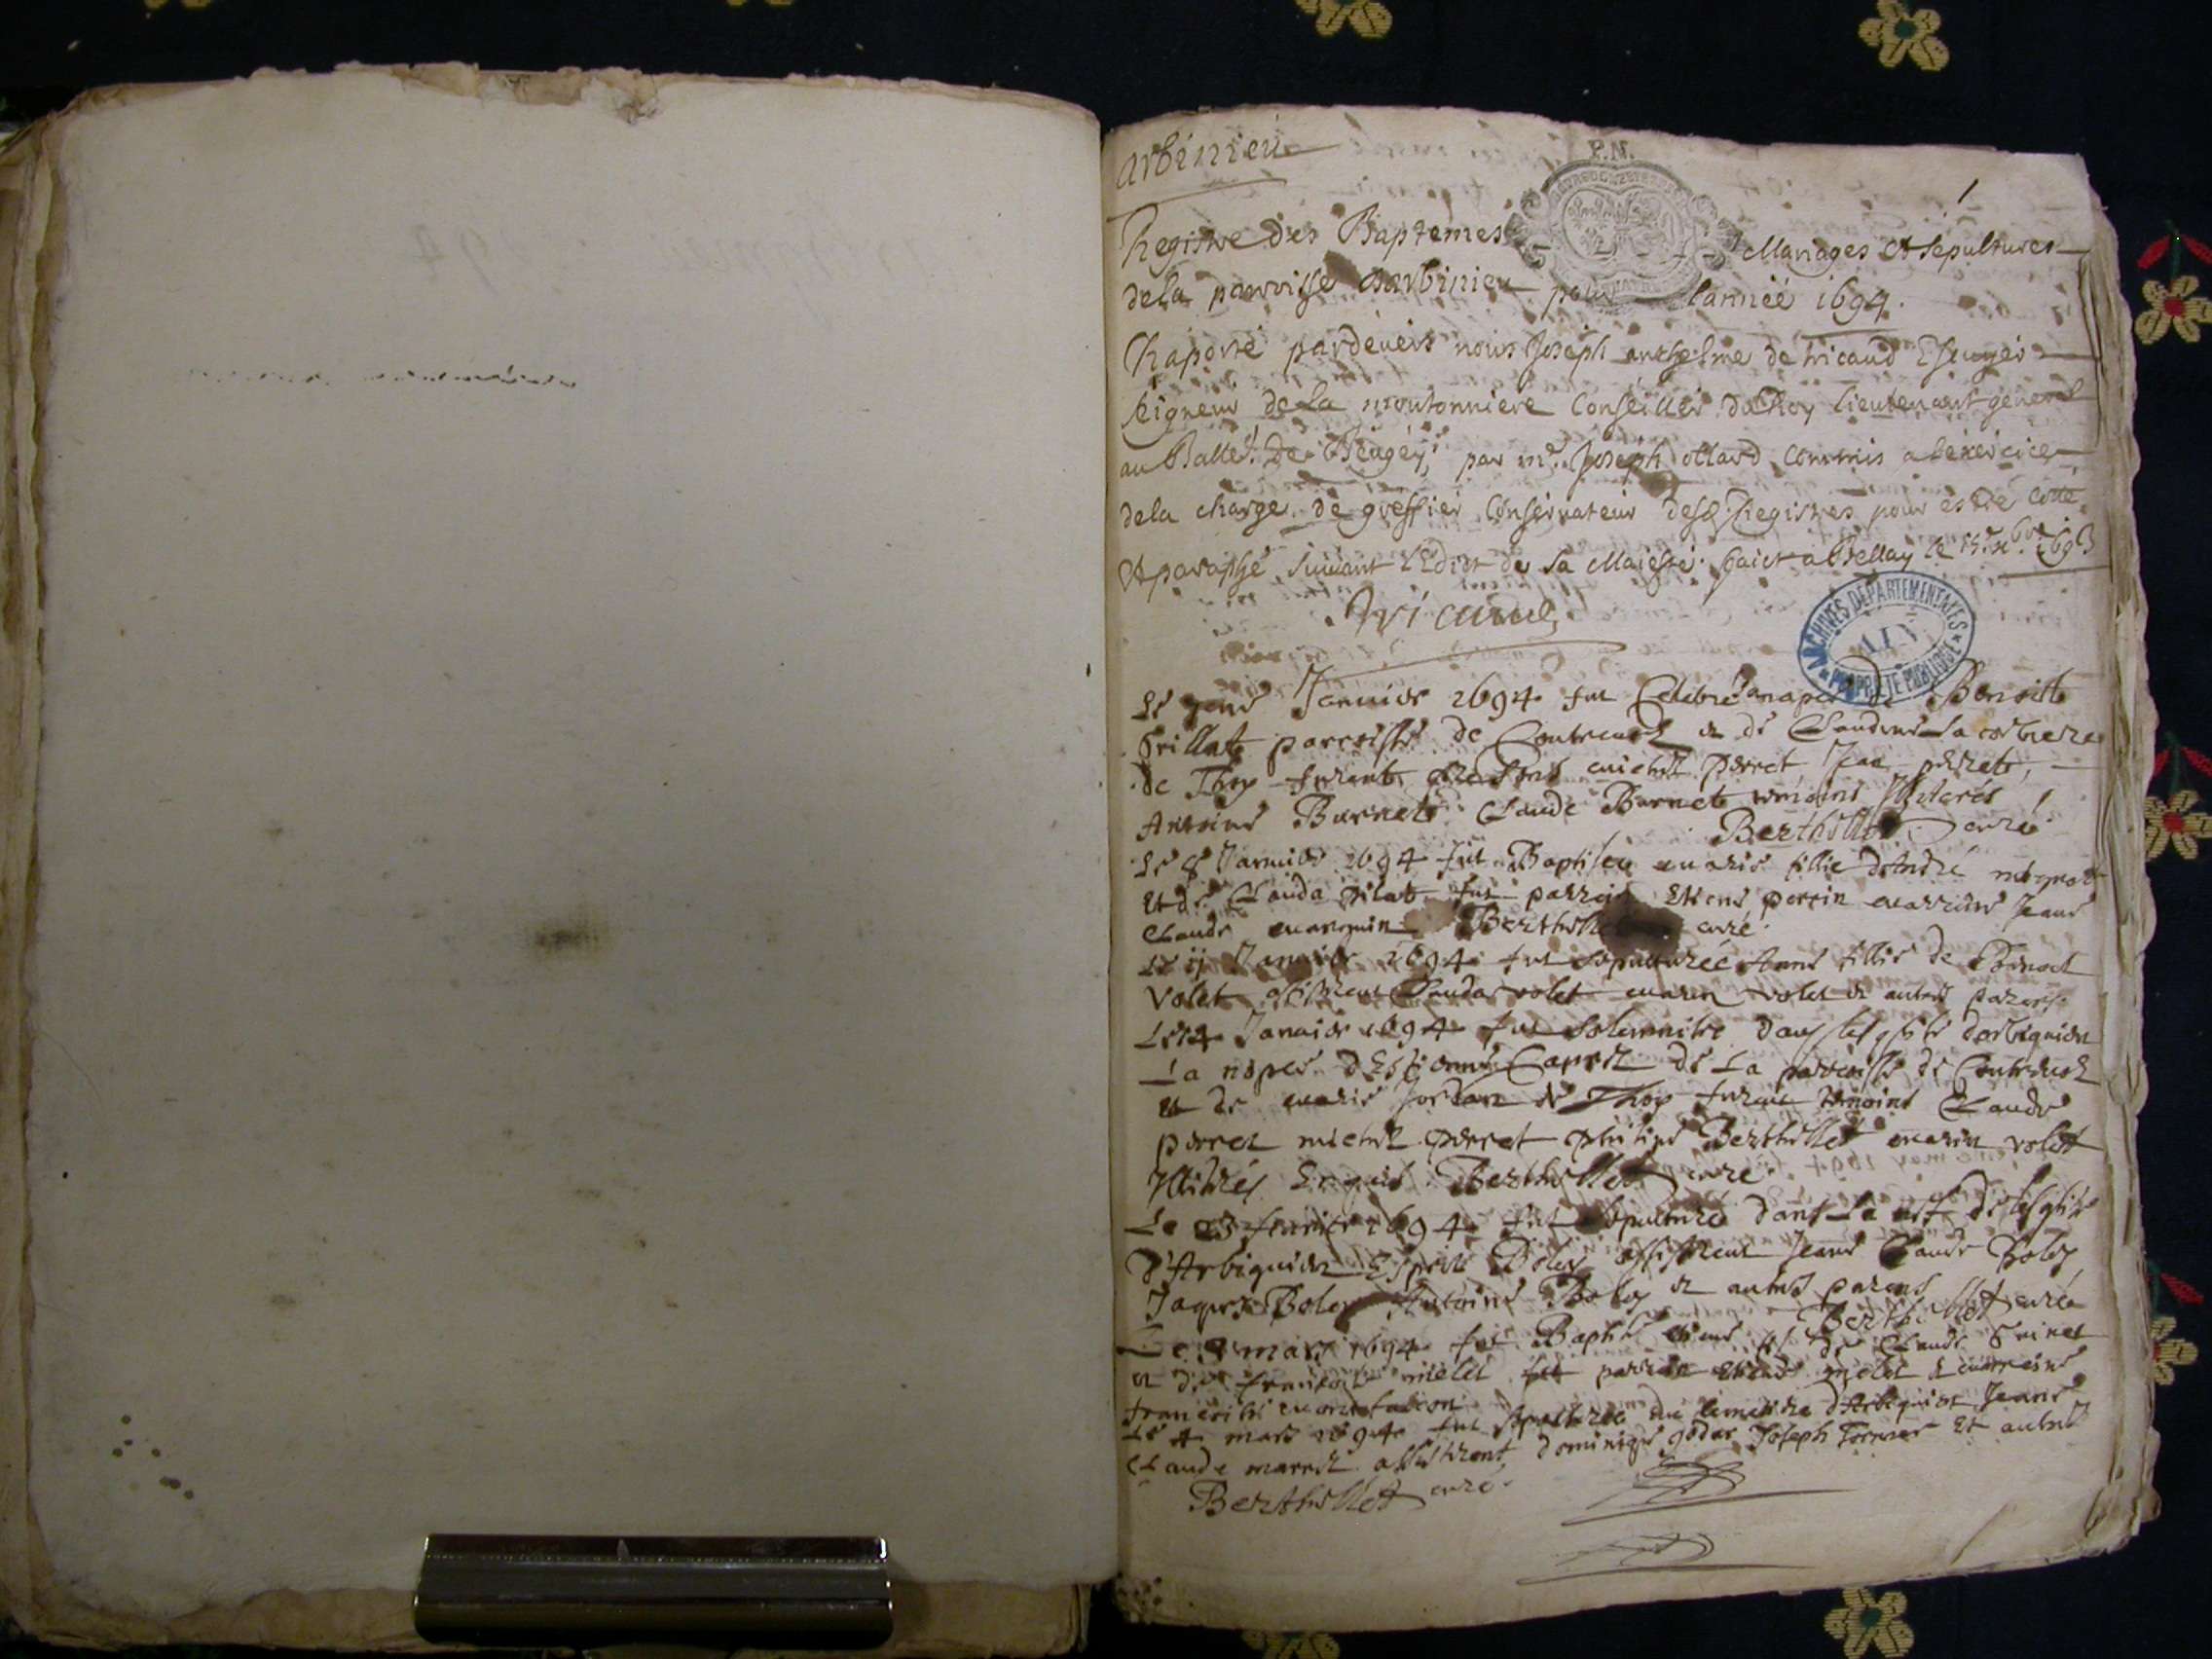 arbinieu
P.N.
1
Registre des Baptemes Mariages Et sepultures
dela parroisse darbinieu pour lannéé 1694.
Raporté pardeuers nous Joseph anthelme de tricaud Escuyer
seigneur dela moutonniere Conseiller du Roy lieutenant general
au Balle. De Beugey, par me. Joseph ollard commis a lexercice
dela charge de greffier Conseruateur desd. Registres pour estre cotté
Et paraphé suiuant l'Edict de sa Maiesté. faict a Bellay le 1693
Tricaud
ARCHIVES DÉPARTEMENTALES
AIN
PROPRIÉTÉ PUBLIQUE
Le Januier 1694 fut Celebré de Benoist
parroisse de et de
de Thoy furent michel perret Jean perret,
Antoine Burnet Claude Burnet temoins Illiteres
Berthollet curé
Le 8 Januier 1694 fut Baptisée marie fillie d'André
Et de Clauda pilat fut parrein Etiene perrin marrine Jeane
Claude Berthollet curé.
Le ij Januier 1694 fut sepulturée Anne fillie de Benoit
Volet Clauda volet marin volet et autres parens.
Le 14 Januier 1694 fut solemnisé dans leglise darbignieu
La d'Estienne de La parroisse de
Et de marie Jordan de Thoy furent temoins Claude
perret michel perret Berthollet marin volet
Illitérés Enquis Berthollet curé.
Le 23 feurier 1694 fut sepulturé dans La nef de leglise
d'Arbignieu Esprit Boley assistirent Jeane Claude Boley
Jaques Boley Antoine Boley et autres parens
Berthollet curé
Le mars 1694 fut Baptisé etiene fil de Claude
et de francoise melet fut parrein etiene melet marreine
francoise
Le 4 mars 1694 fut sepulturée au cimetiere d'Arbignieu Jeane
Claude assistirent dominique godar Joseph Et autres
Berthollet curé.